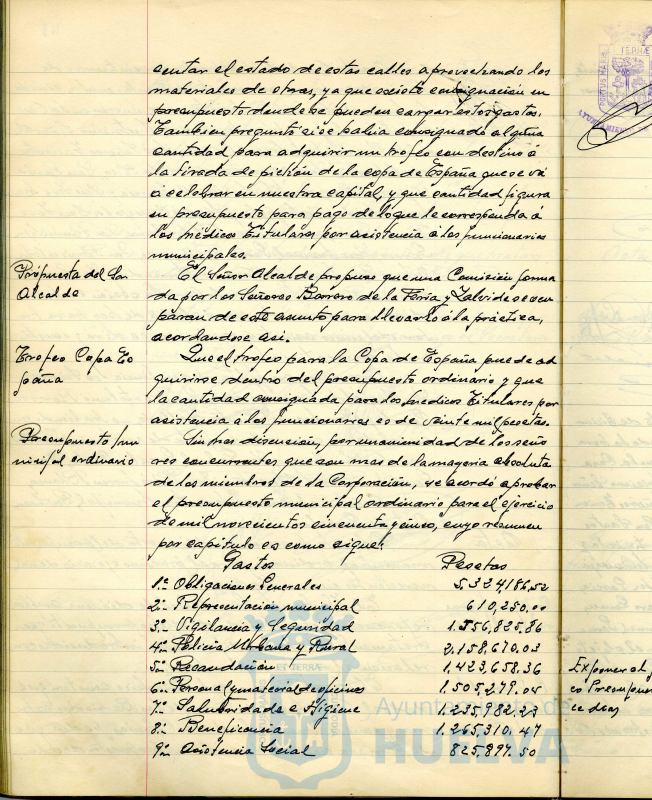 sentar el estado de estas calles aprovechando los
materiales de otras, ya que existe consignación en
presupuesto donde se pueden cargar estos gastos.
Tambien preguntó si se habia consignado alguna
cantidad para adquirir un trofeo con destino á
la tirada de pichón de la copa de España que se vá
á celebrar en nuestra capital, y que cantidad figura
en presupuesto para pago de lo que le corresponda á
los médicos titulares por asistencia á los funcionarios
municipales.
Propuesta del Sor
Alcalde
El Señor Alcalde propuso que una Comisión forma
da por los Señores Borrero de la Feria y Zalvide se ocu
paran de este asunto para llevarlo á la práctica,
acordandose asi.
Trofeo Copa Es
paña
Que el trofeo para la Copa de España puede ad
quirirse dentro del presupuesto ordinario y que
la cantidad consignada para los médicos Titulares por
asistencia á los funcionarios es de veinte mil pesetas.
Presupuesto mu
nicipal ordinario
Sin mas discusión, por unanimidad de los seño
res concurrentes que son mas de la mayoria absoluta
de los miembros de la Corporación, se acordó aprobar
el presupuesto municipal ordinario para el ejercicio
de mil novecientos cincuenta y cinco, cuyo resumen
por capitulo es como sigue:
Gastos Pesetas
1º Obligaciones Generales 5,324,186,52
2º Representación municipal 610,250.00
3º Vigilancia y Seguridad 1.556,825,86
4º Policia Urbana y Rural 2,158,670,03
5º Recaudación 1,423,658.36
6º Personal y material de oficinas 1.505,279.04
7º Salubridad e Higiene 1.235,982.23
8º Beneficencia 1.265,310.47
9º Asistencia Social 825,897.50
Exponer al
co Presupues
ce dias
Ayuntamiento de
HUELVA